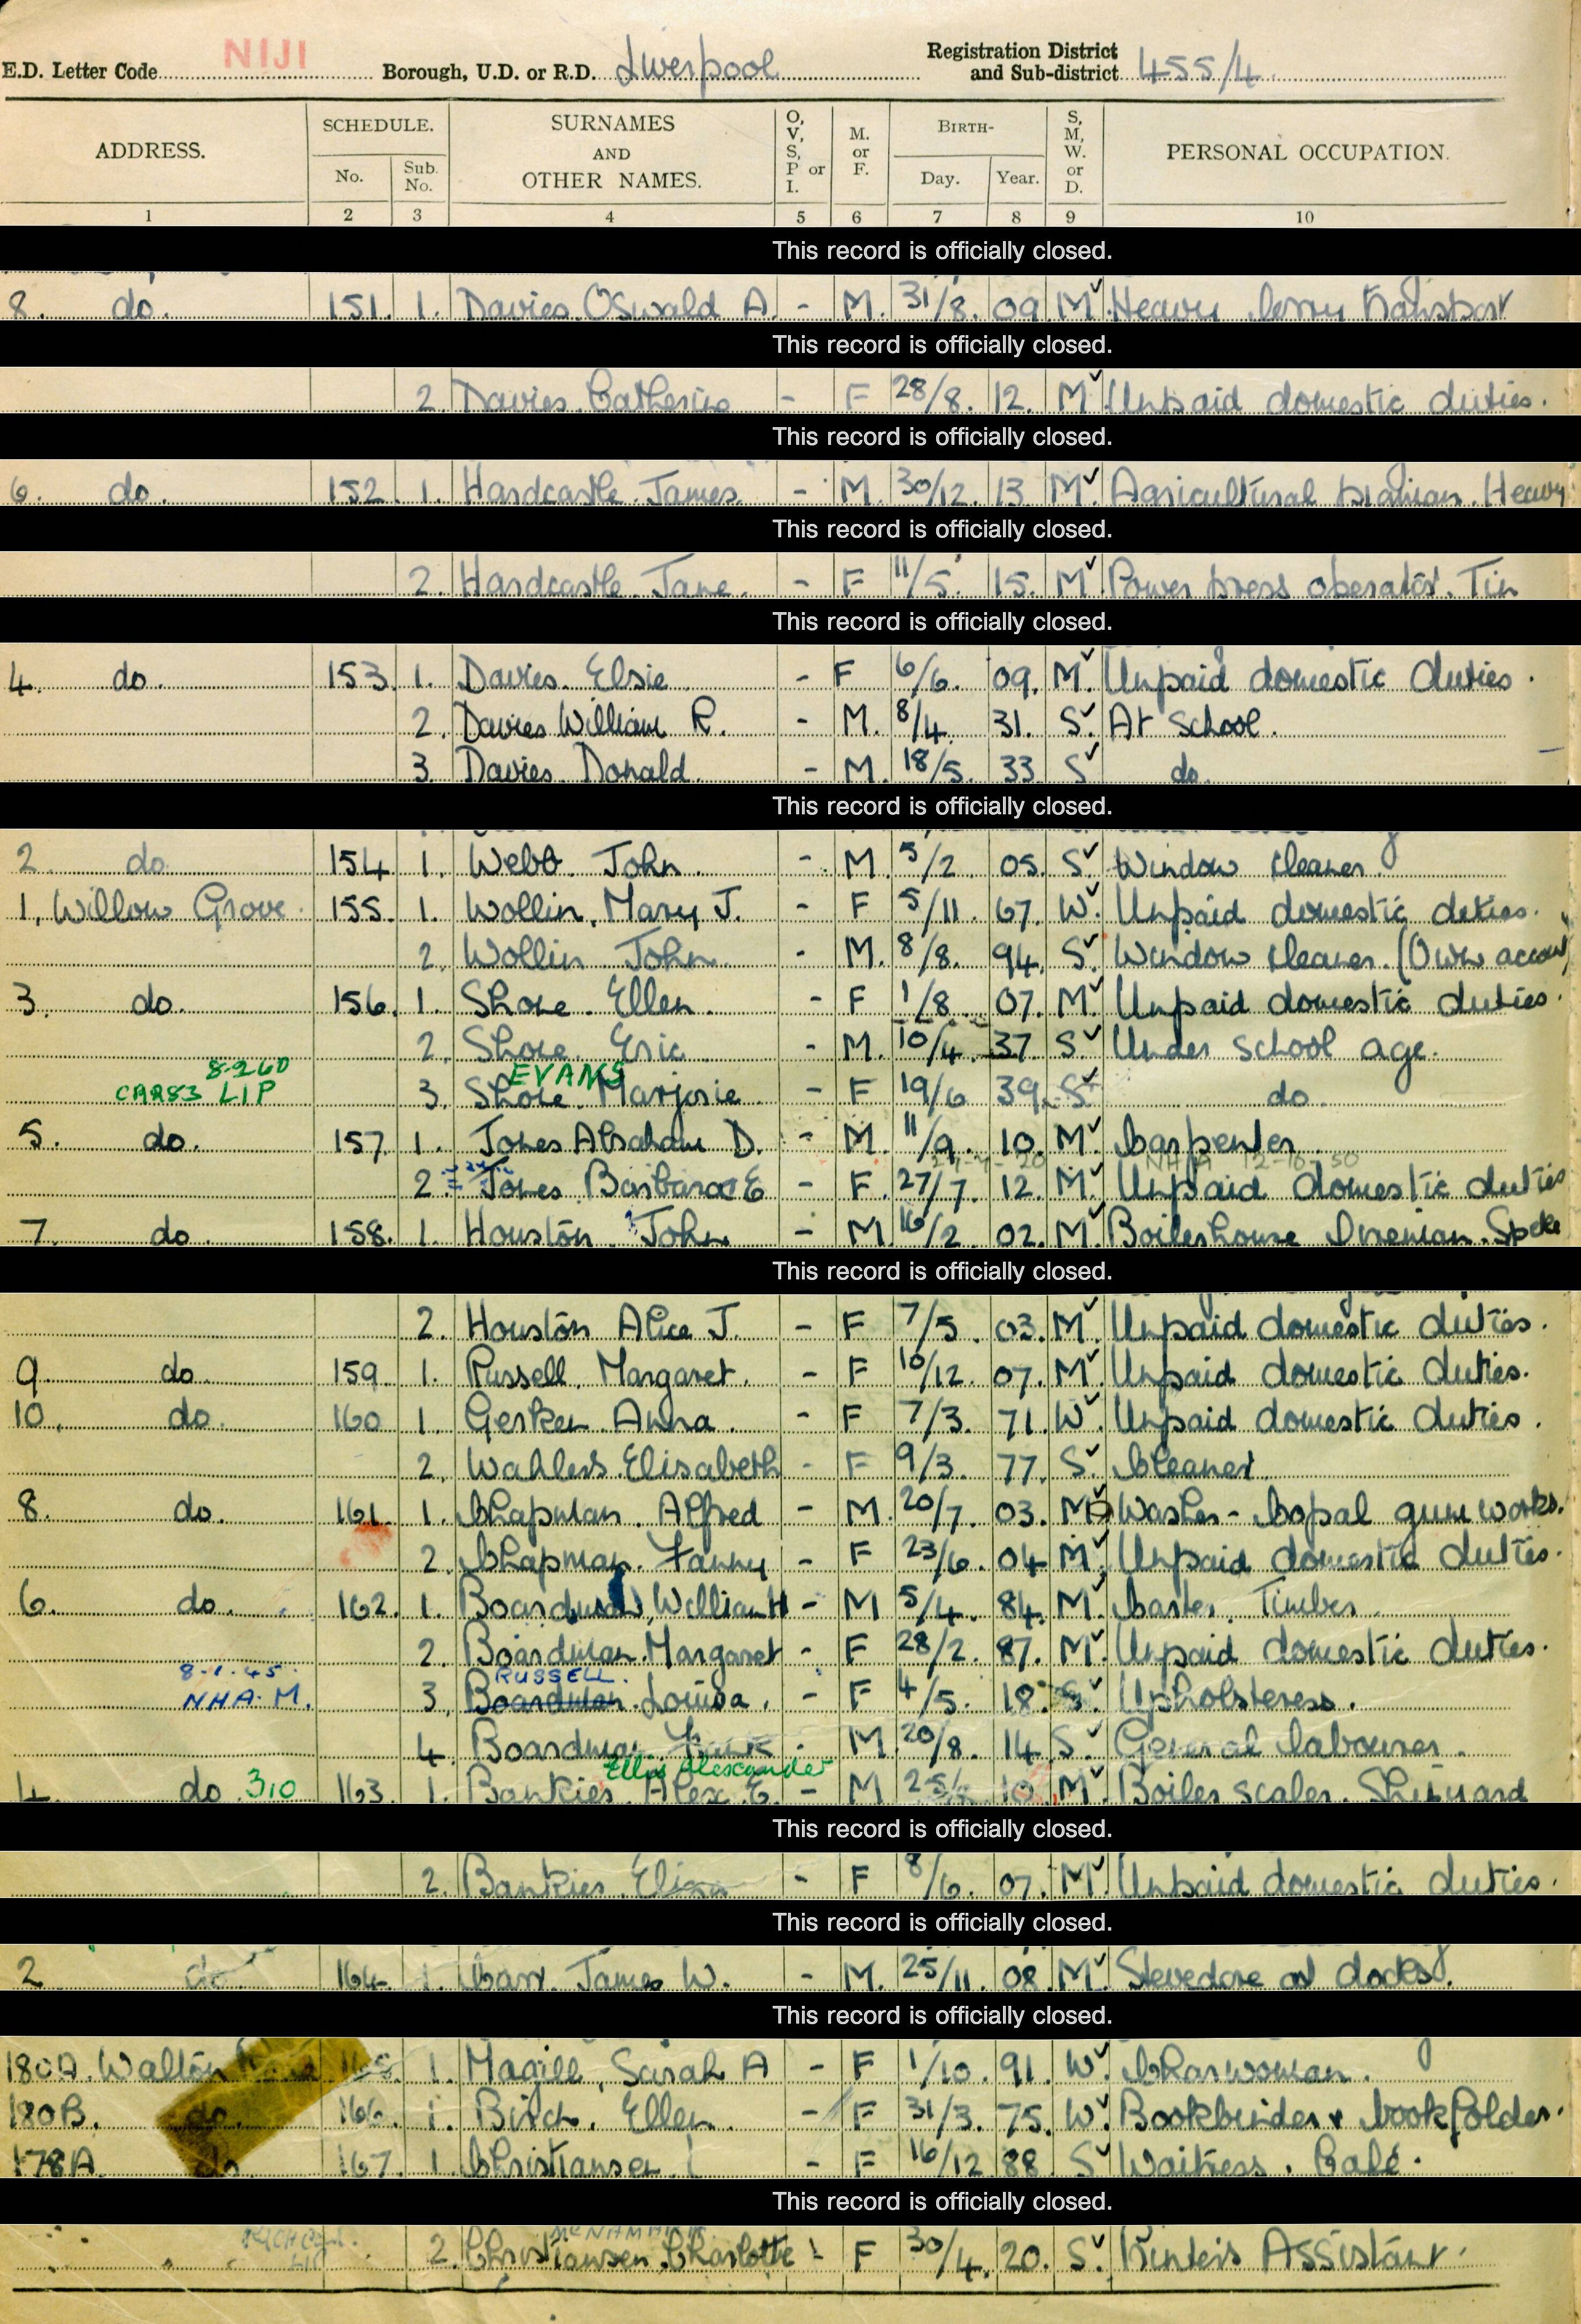 E.D. Letter Code NIJI Borough, U.D. or R.D. Liverpool Registration District and Sub-district 455/4
ADDRESS. SCHEDULE. No. Sub. No. SURNAMES AND OTHER NAMES. O, V, S, P or I. M. or F. BIRTH- Day. Year. S, M, W. or D. PERSONAL OCCUPATION.
1 2 3 4 5 6 7 8 9 10
This record is officially closed.
8. do. 151. 1. Davies Oswald A. - M. 31/8. 09 M Heavy lorry transport
This record is officially closed.
2. Davies Catherine - F 28/8. 12. M Unpaid domestic duties.
This record is officially closed.
6. do. 152. 1. Hardcastle James. - M. 30/12. 13 M. Agricultural Heavy
This record is officially closed.
2. Hardcastle Jane. - F 11/5. 15. M Power press operator. Tin
This record is officially closed.
4. do. 153. 1. Davies. Elsie - F 6/6. 09. M. Unpaid domestic duties.
2. Davies William R. - M. 8/4. 31. S. At School.
3. Davies. Donald. - M. 18/5. 33. S do.
This record is officially closed.
2. do 154 1. Webb John. - M. 5/2 05. S Window cleaner.
1, Willow Grove. 155. 1. Wollin, Mary J. - F 5/11 67. W. Unpaid domestic duties.
2. Wollin John. - M. 8/8. 94. S. Window cleaner. (Own account)
3. do. 156. 1. Shore. Ellen. - F 1/8. 07. M Unpaid domestic duties.
2. Shore. Eric - M. 10/4. 37. S Under school age.
8-2-60 EVANS
CAR83 LIP 3. Shore. Marjorie - F 19/6 39. S do.
5. do. 157. 1. Jones Abraham D. - M. 11/9. 10. M Carpenter
2. Jones Barbara E - F. 27/7. 12. M. Unpaid domestic duties
7. do. 158. 1. Houston John - M. 16/2. 02. M. Boilerhouse Fireman. Speke
This record is officially closed.
2. Houston Alice J. - F 7/5. 03. M. Unpaid domestic duties.
9. do. 159 1. Russell. Margaret. - F 10/12. 07. M. Unpaid domestic duties.
10. do. 160 1. Gerken Anna - F 7/3. 71. W. Unpaid domestic duties.
2. Wahlers Elisabeth - F 9/3. 77. S. Cleaner.
8. do. 161. 1. Chapman. Alfred - M. 20/7. 03. M Washer - Copal gum works.
2. Chapman. Fanny - F 23/6. 04 M. Unpaid domestic duties.
6. do. 162. 1. Boardman William H - M 5/4. 84. M. Carter. Timber
2. Boardman. Margaret - F 28/2. 87. M. Unpaid domestic duties.
8-1-45. RUSSELL.
NHA. M. 3. Boardman. Louisa. - F 4/5. 18. S. Upholsteress.
4. Boardman. - M 20/8. 14. S. General labourer.
Ellis Alexander
4. do. 310 163. 1. Bankies. Alex. E. - M 25/ 10. M. Boiler scaler. Shipyard
This record is officially closed.
2. Bankies. Eliza - F 8/6. 07. M. Unpaid domestic duties.
This record is officially closed.
2 do 164. 1. Carr. James W. - M. 25/11. 08. M. Stevedore at docks.
This record is officially closed.
180A. Walton 165. 1. Magill, Sarah A - F 1/10. 91. W. Charwoman.
180B. do. 166. 1. Birch. Ellen. - F 31/3. 75. W. Bookbinder & bookfolder.
178A do. 167. 1 Christiansen - F 16/12 88 S Waitress. Café.
This record is officially closed.
McNAMARA
2. Christiansen. Charlotte - F 30/4. 20. S. Printer's Assistant.